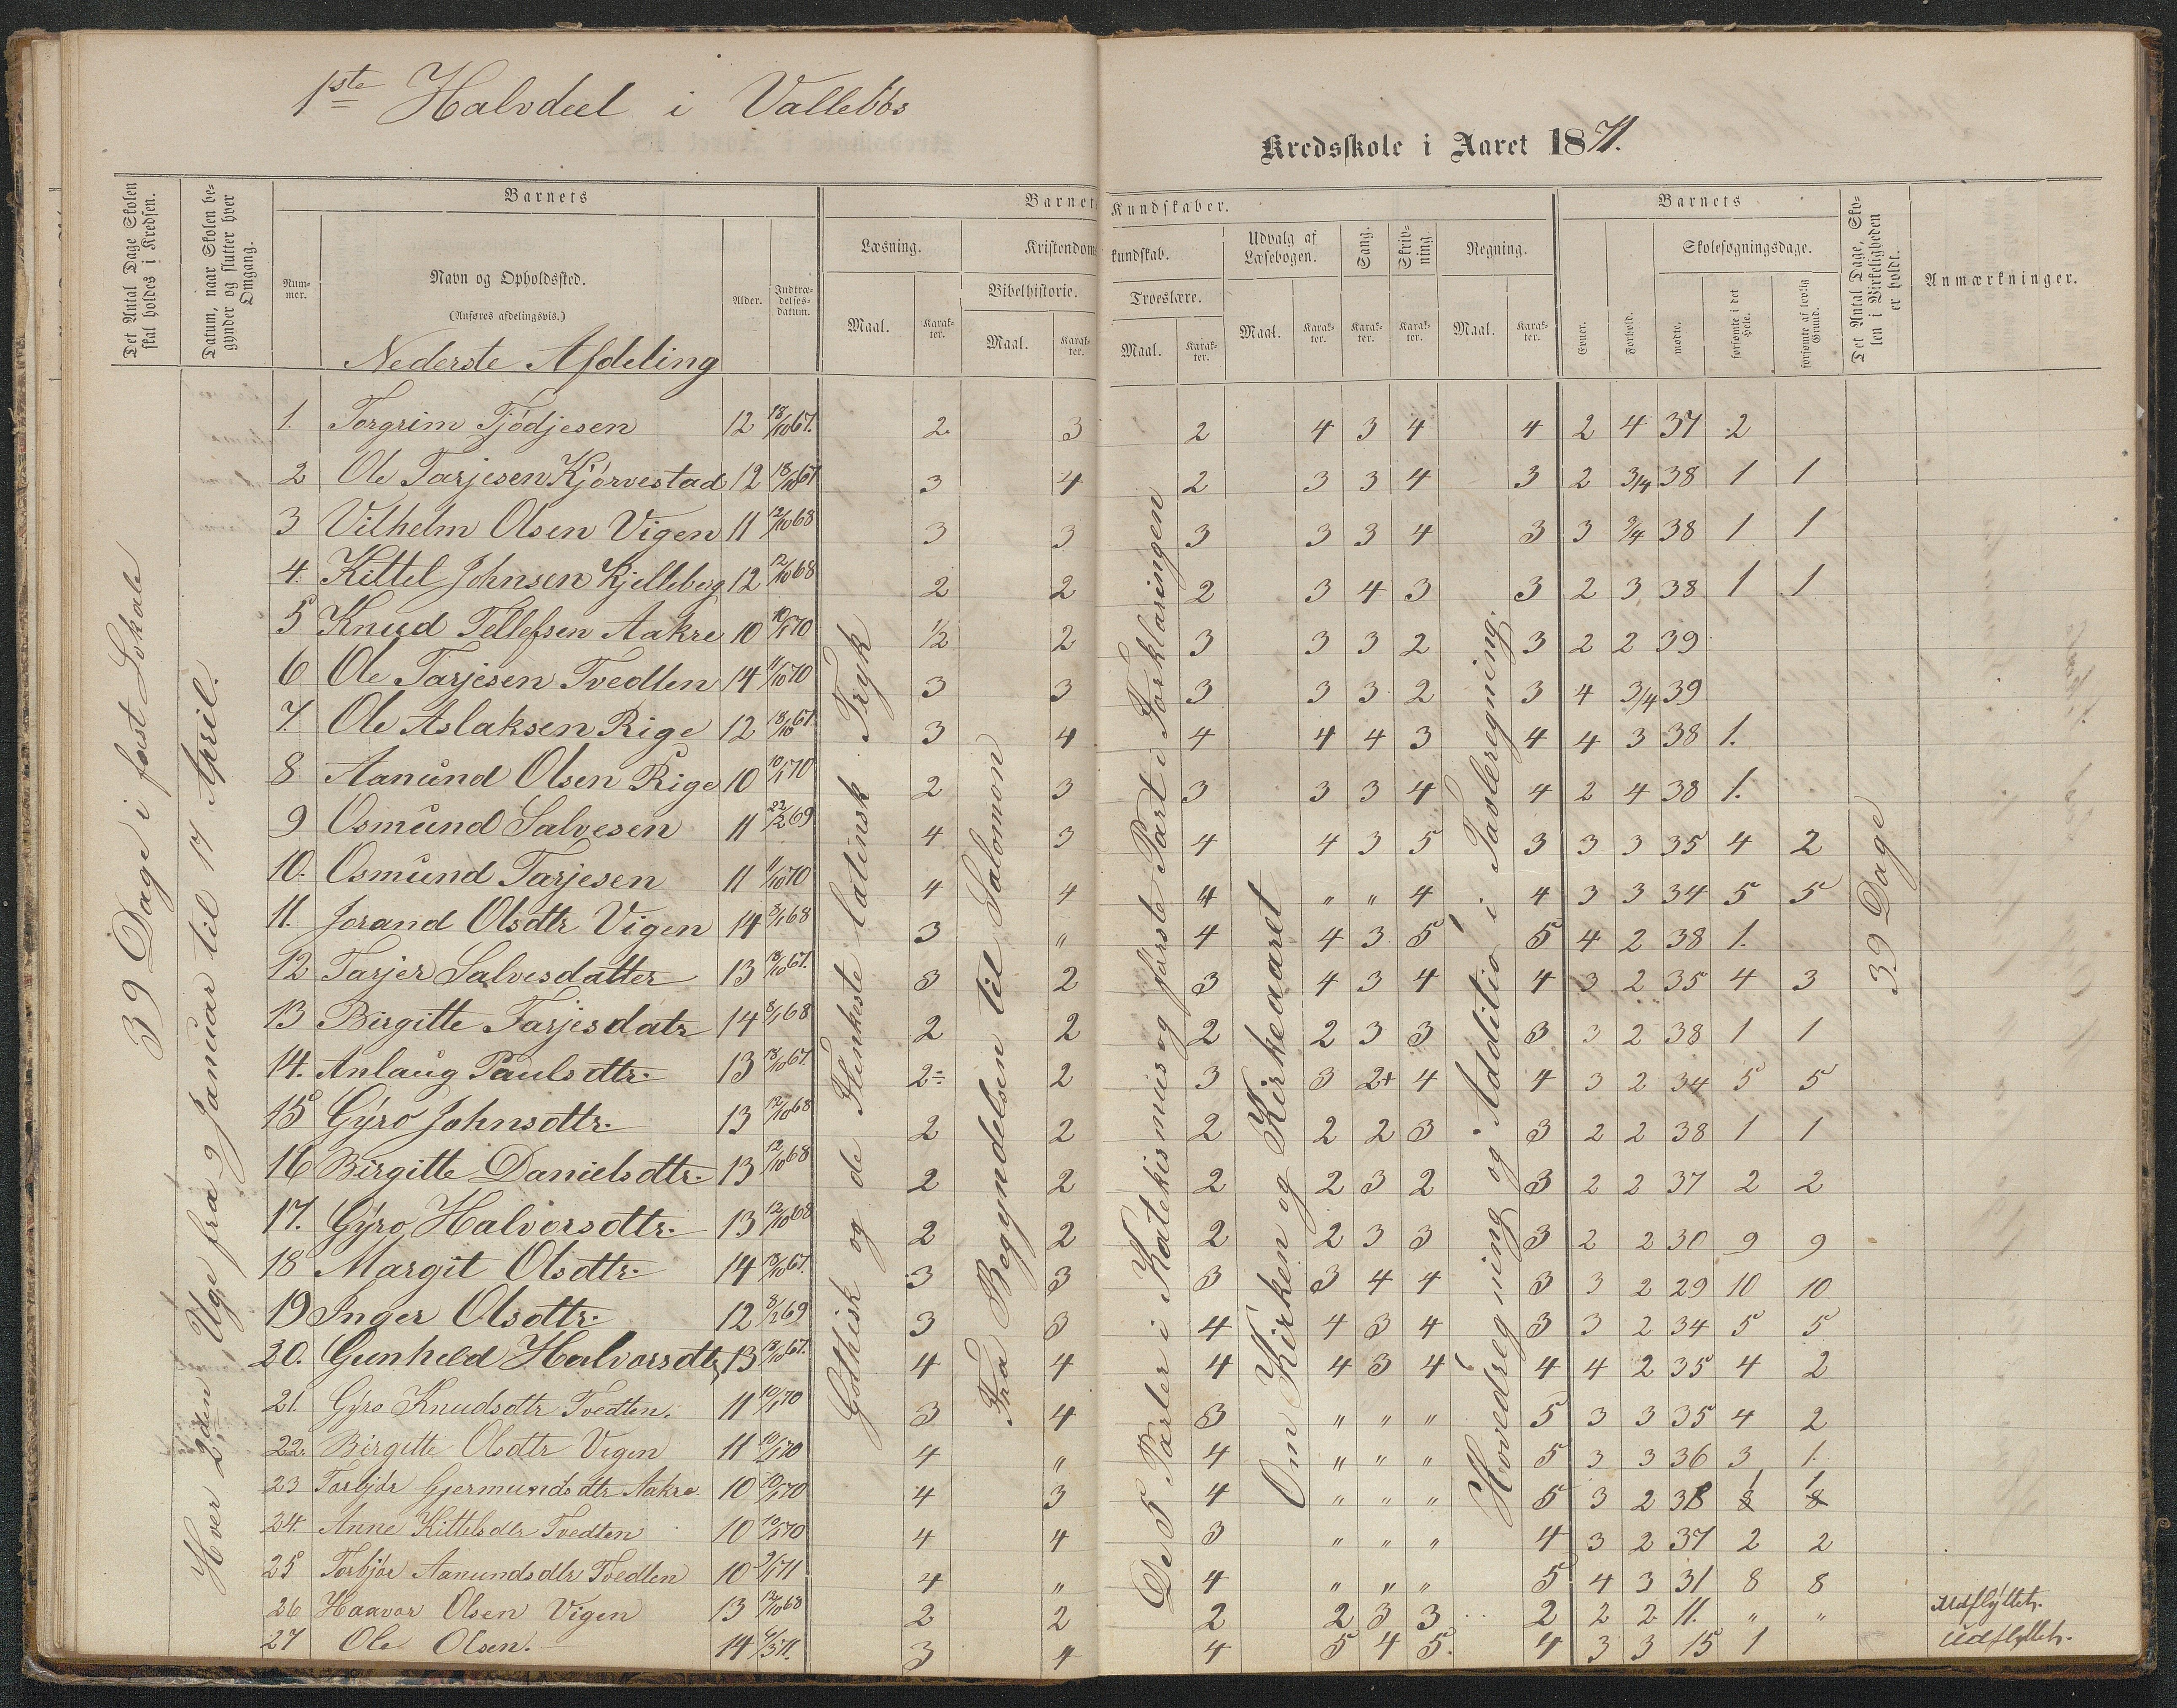 1ste Halvdeel i Vallebös
Kredsskole i Aaret 1871.
Det Antal Dage Skolen skal holdes i Kredsen.
Datum, naar Skolen begynder og slutter hver Omgang.
Barnets
Nummer.
Navn og Opholdssted.
(Anføres afdelingsvis.)
Alder.
Indtrædelsesdatum.
Barnets Kundskaber.
Læsning.
Maal.
Karakter.
Kristendomskundskab.
Bibelhistorie.
Maal.
Karakter.
Troeslære.
Maal.
Karakter.
Udvalg af Læsebogen.
Maal.
Karakter.
Sang.
Karakter.
Skrivning.
Karakter.
Regning.
Maal.
Karakter.
Barnets
Evner.
Forhold.
Skolesøgningsdage.
mødte.
forsømte i det Hele.
forsømte af lovlig Grund.
Det Antal Dage, Skolen i Virkeligheden er holdt.
Anmærkninger.
Nederste Afdeling
39 Dage i fast Lokale
Hver 2den Uge fra 9 Januar til 17 April.
Gothisk og de Flenkeste latinsk Tryk
Fra Begyndelsen til Salomon
De 5 Parter i Katekismus og første Part i Forklaringen
Om Kirken og Kirkeaaret
Hovedregning og Additio i Tavleregning.
39 Dage
1. Torgrim Tjödjesen 12 18/10 67. 2. 3 2 4 3 4 4 2 4 37 2
2 Ole Tarjesen Kjörvestad 12 18/10 67 3 4 2 3 3 4 3 2 3/4 38 1 1
3 Vilhelm Olsen Vigen 11 12/10 68 3 3 3 3 3 4 3 3 3/4 38 1 1
4. Kittel Johnsen Kjelleberg 12 12/10 68 2 2 2 3 4 3 3 2 3 38 1 1
5 Knud Tellefsen Aakre 10 10/1 70 1/2 2 3 3 3 2 3 2 2 39
6 Ole Tarjesen Tvedten 14 11/10 70 3 3 3 3 3 2 3 4 3/4 39
7. Ole Aslaksen Rige 12 18/10 67. 3 4 4 4 4 3 4 4 3 38 1.
8 Aanund Olsen Rige 10 10/1 70 2 3 3 3 3 4 4 2 4 38 1.
9 Osmund Salvesen 11 22/2 69 4 3 4 4 3 5 3 3 3 35 4 2
10. Osmund Tarjesen 11 11/10 70 4 4 4 " " 4 4 3 3 34 5 5
11. Jorand Olsdtr Vigen 14 8/1 68 3 " 4 4 3 5 5 4 2 38 1.
12 Tarjer Salvesdatter 13 18/10 67. 3 2 3 4 3 4 4 3 2 35 4 3
13 Birgitte Tarjesdatr 14 8/1 68 2 2 2 2 3 3 3 3 2 38 1 1
14. Anlaug Paulsdtr. 13 18/10 67. 2÷ 2 3 3 2+ 4 4 3 2 34 5 5
15 Gyro Johnsdtr. 13 12/10 68 2 2 2 2 2 3 3 2 2 38 1 1
16 Birgitte Danielsdtr. 13 12/10 68 2 2 2 2 3 2 3 2 2 37 2 2
17. Gyro Halvorsdtr. 13 12/10 68 2 2 2 2 3 3 3 2 2 30 9 9
18 Margit Olsdtr. 14 18/10 67. 3 3 3 3 4 4 3 3 2 29 10 10
19 Inger Olsdtr. 12 8/2 69 3 3 4 4 3 4 3 3 2 34 5 5
20. Gunheld Halvorsdtr 13 18/10 67. 4 4 4 4 3 4 4 4 2 35 4 2
21. Gyro Knudsdtr Tvedten. 11 10/1 70 3 4 3 " " " 5 3 3 35 4 2
22. Birgitte Olsdtr Vigen 11 10/1 70 4 " 4 " " " 5 3 3 36 3 1.
23 Torbjör Gjermundsdtr Aakre 10 10/1 70 4 3 4 " " " 5 3 2 38 1 1
24. Anne Kittelsdtr Tvedten 10 10/1 70 4 4 3 " " " 4 3 2 37 2 2
25 Torbjör Aanundsdtr Tvedten 10 9/1 71 4 " 4 " " " 5 4 3 31 8 8
26 Haavor Olsen Vigen 13 12/10 68 2 2 2 2 3 3 2 2 2 11. " " udflyttet.
27 Ole Olsen. 14 4/3 71. 3 4 4 5 4 5. 4 3 3 15 1 udflyttet.